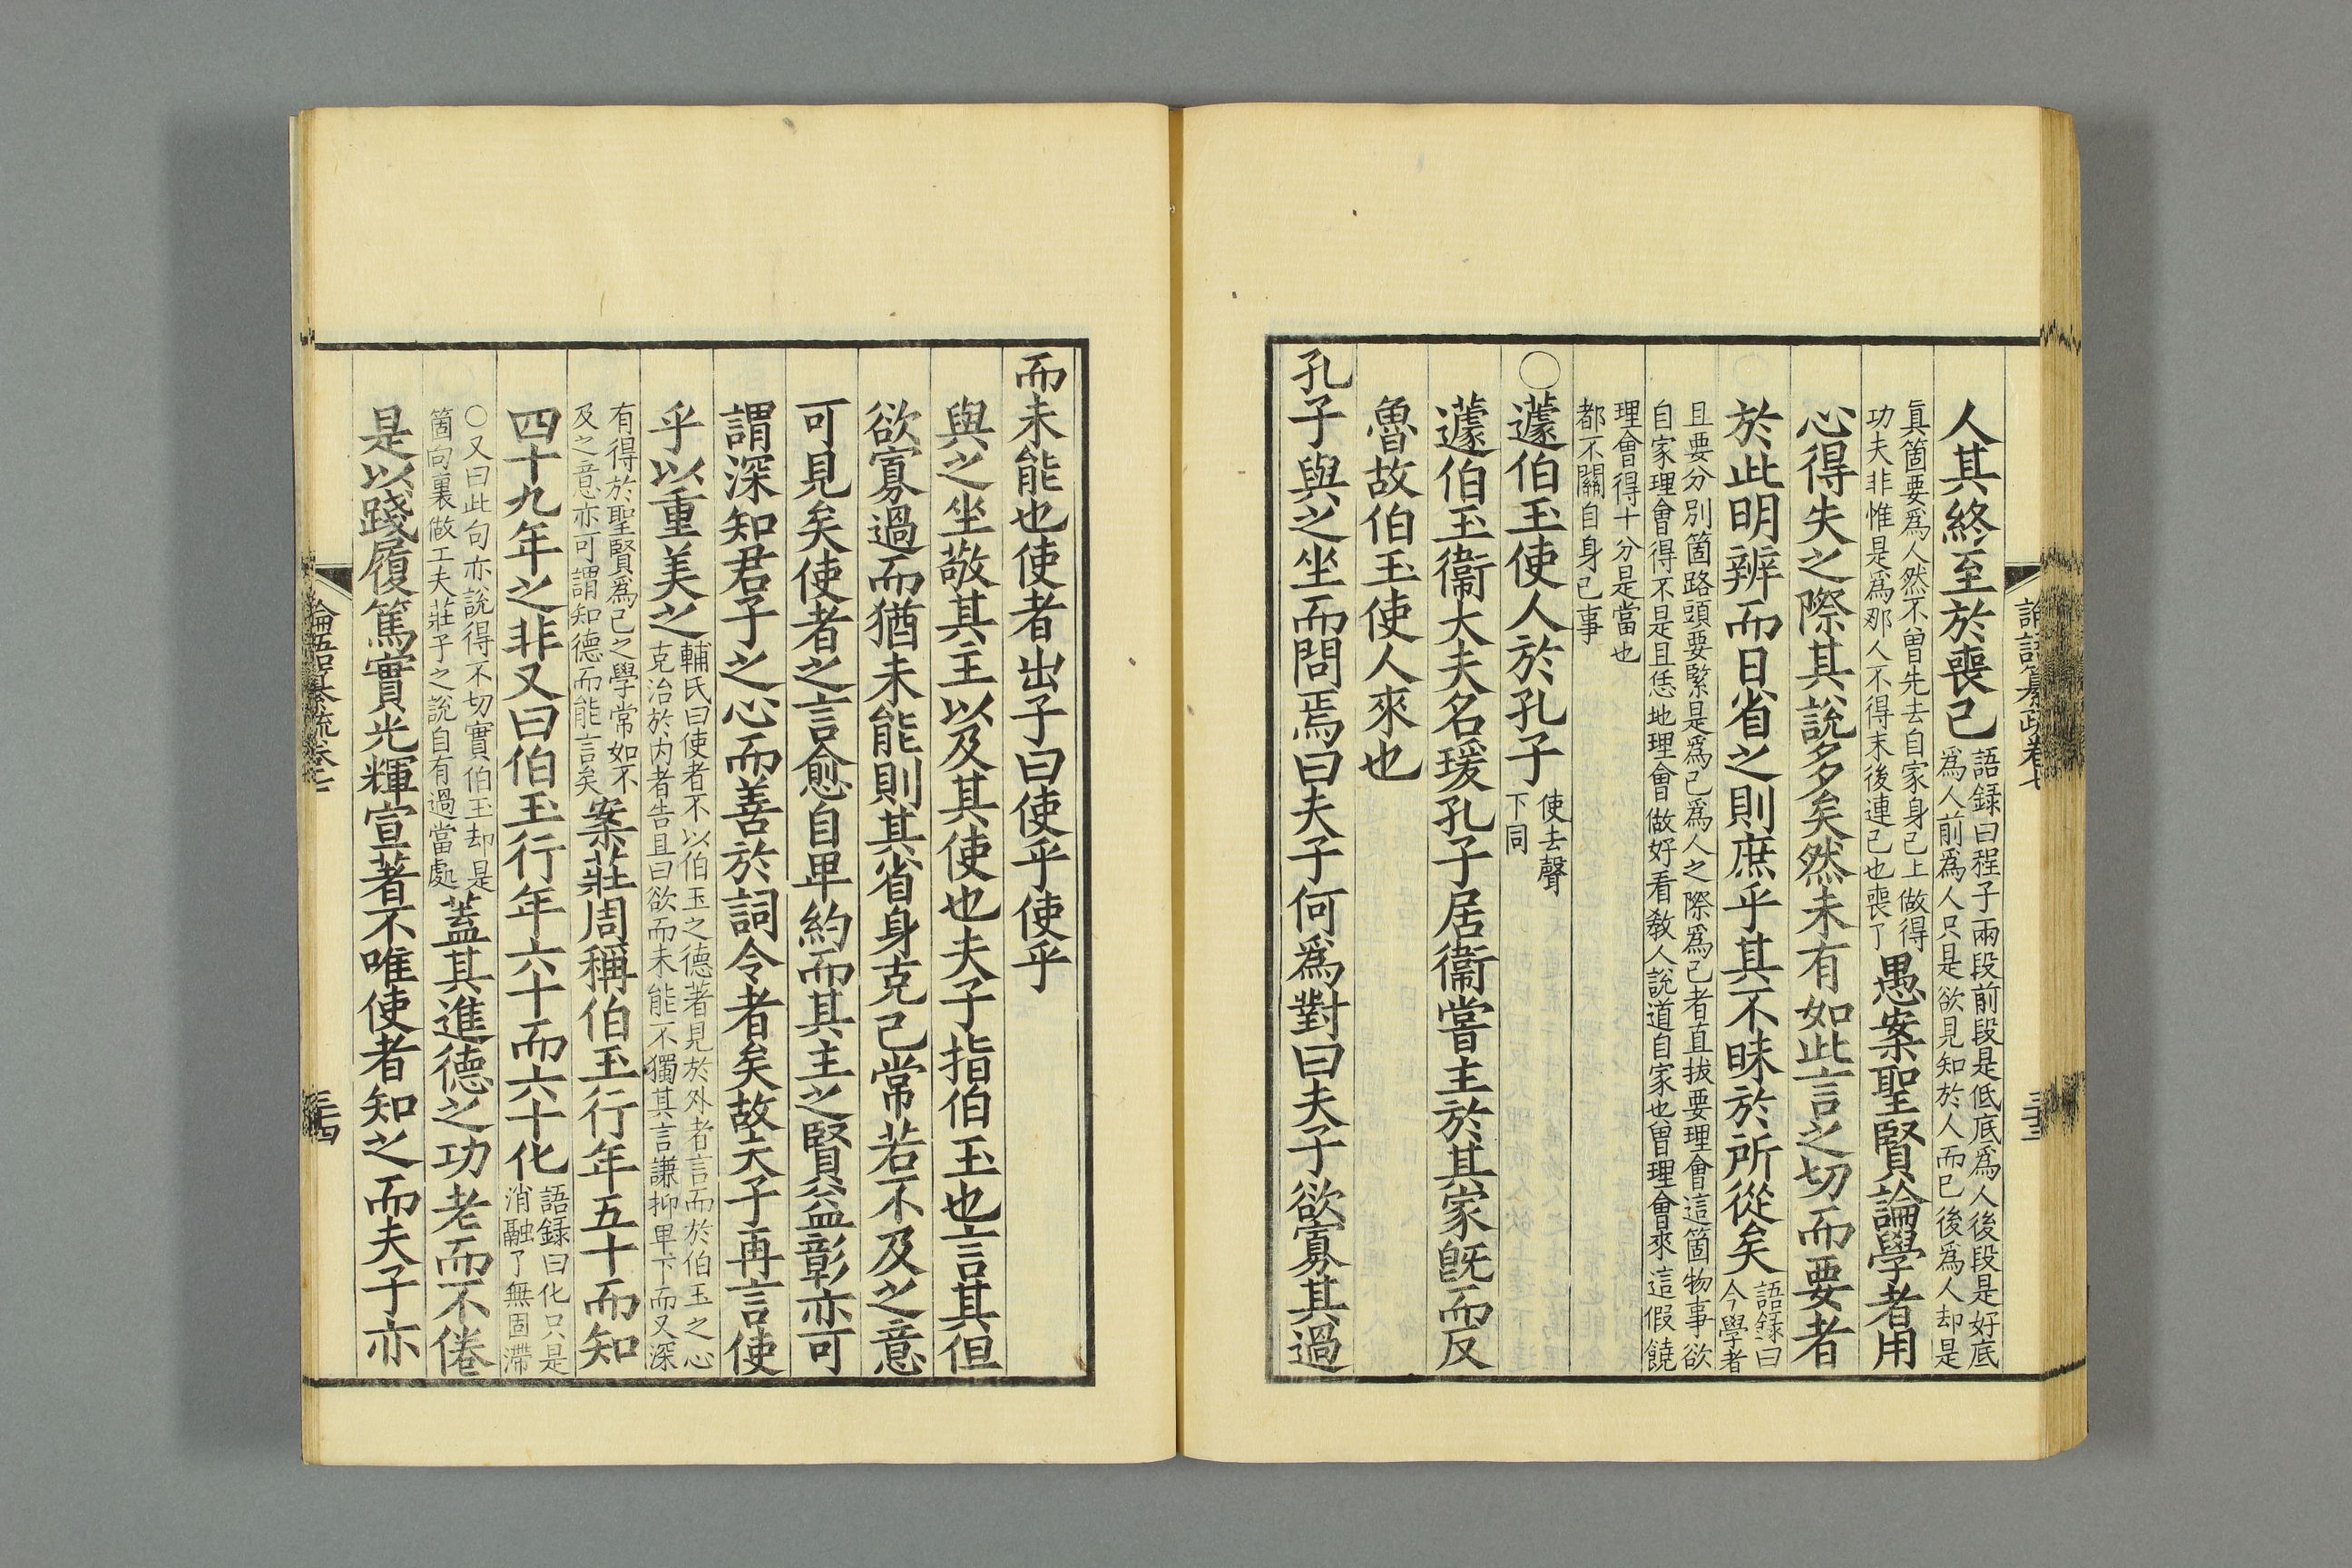 人其終至於喪己語録曰程子兩段前段是低底爲人後段是好底爲人前爲人只是欲見知於人而已後爲人却是
真箇要爲人然不曾先去自家身己上做得功夫非惟是爲那人不得末後連己也喪了愚案聖賢論學者用
心得失之際其說多矣然未有如此言之切而要者
於此明辨而日省之則庶乎其不昧於所從矣語録曰今學者
且要分別箇路頭要緊是爲己爲人之際爲己者直拔要理會這箇物事欲自家理會得不是且恁地理會做好看教人說道自家也曾理會來這假饒
理會得十分是當也都不關自身己事
○蘧伯玉使人於孔子使去聲下同
蘧伯玉衞大夫名瑗孔子居衞嘗主於其家旣而反
魯故伯玉使人來也
孔子與之坐而問焉曰夫子何爲對曰夫子欲寡其過
而未能也使者出子曰使乎使乎
與之坐敬其主以及其使也夫子指伯玉也言其但
欲寡過而猶未能則其省身克己常若不及之意
可見矣使者之言愈自卑約而其主之賢益彰亦可
謂深知君子之心而善於詞令者矣故夫子再言使
乎以重美之輔氏曰使者不以伯玉之德著見於外者言而於伯玉之心克治於内者告且曰欲而未能不獨其言謙抑卑下而又深
有得於聖賢爲己之學常如不及之意亦可謂知德而能言矣案莊周稱伯玉行年五十而知
四十九年之非又曰伯玉行年六十而六十化語録曰化只是消融了無固滯
○又曰此句亦說得不切實伯玉却是箇向裏做工夫莊子之說自有過當處蓋其進德之功老而不倦
是以踐履篤實光輝宣著不唯使者知之而夫子亦